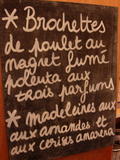 * Brochettes
de poulet au
magret fumé
polenta aux
trois parfums
* madeleines aux
aux amandes et
aux cerises amarena